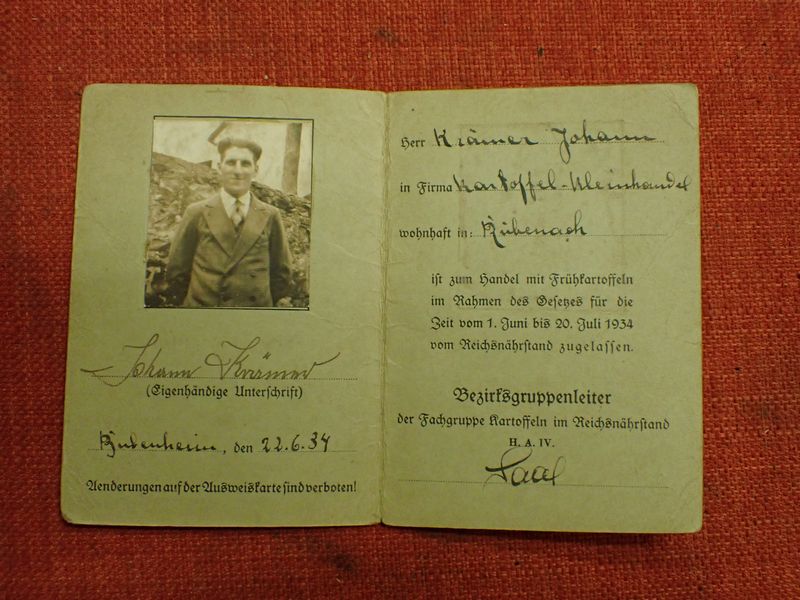 Johann Krämer
(Eigenhändige Unterschrift)
den 22.6.34
Aenderungen auf der Ausweiskarte sind verboten!
Herr Krämer Johann
in Firma Kartoffel-Kleinhandel
wohnhaft in: Rübenach
ist zum Handel mit Frühkartoffeln
im Rahmen des Gesetzes für die
Zeit vom 1. Juni bis 20. Juli 1934
vom Reichsnährstand zugelassen.
Bezirksgruppenleiter
der Fachgruppe Kartoffeln im Reichsnährstand
H. A. IV.
Saal